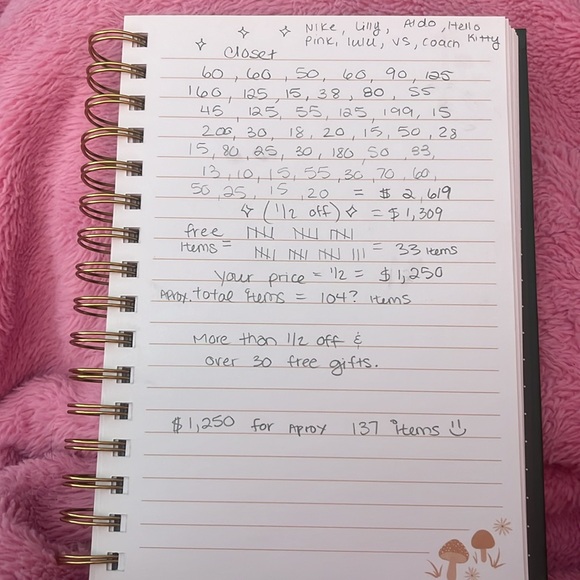 Nike, Lilly, Aldo, Hello
Pink, lulu, VS, Coach Kitty
Closet
60, 60, 50, 60, 90, 125
160, 125, 15, 38, 80, 55
45, 125, 55, 125, 199, 15
200, 30, 18, 20, 15, 50, 28
15, 80, 25, 30, 180, 50, 33,
13, 10, 15, 55, 30, 70, 60,
50, 25, 15, 20 = $ 2,619
(1/2 off) = $1,309
free
Items = = 33 Items
Your price = 1/2 = $1,250
Aprox. total items = 104? Items
More than 1/2 off &
over 30 free gifts.
$1,250 for Aprox 137 items